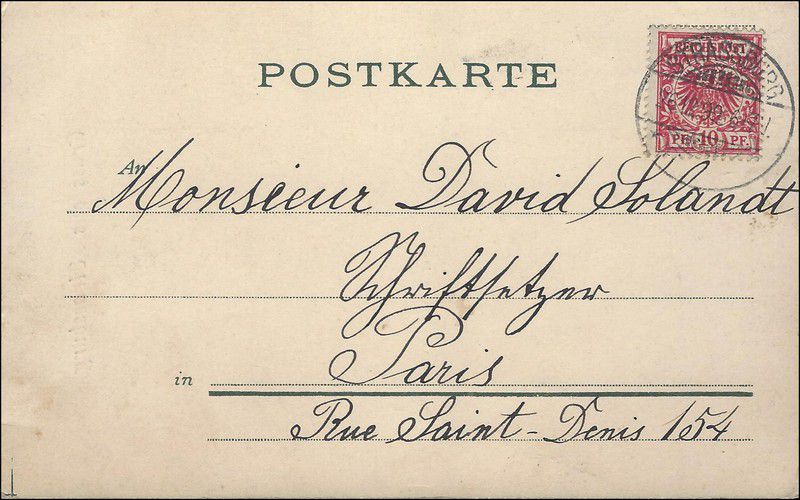 POSTKARTE
PF. 10 PF.
An
Monsieur David Solandt
Schriftsetzer
in Paris
Rue Saint-Denis 154